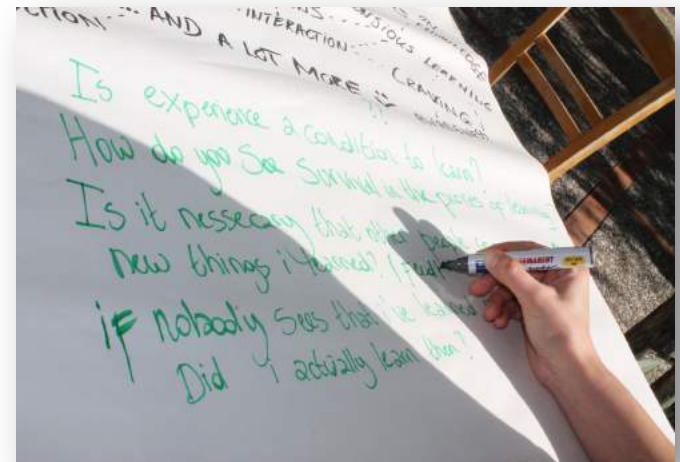 CTION... AND A LOT MORE
INTERACTION... CRAVING!
LEARNING
Is experience a condition to learn?
How do you See Survival in the process of learning
Is it nessecary that other people
new things i learned? (feed
if nobody sees that i've learned
Did i actually learn then?
PERMANENT